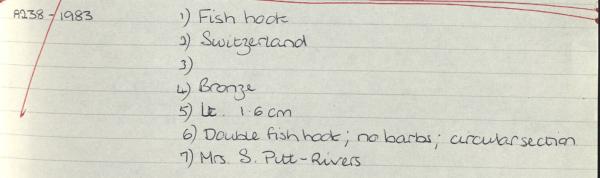 A238 - 1983
1) Fish hook
2) Switzerland
3)
4) Bronze
5) Lt. 1.6 cm
6) Double fish hook; no barbs; circular section
7) Mrs. S. Pitt-Rivers